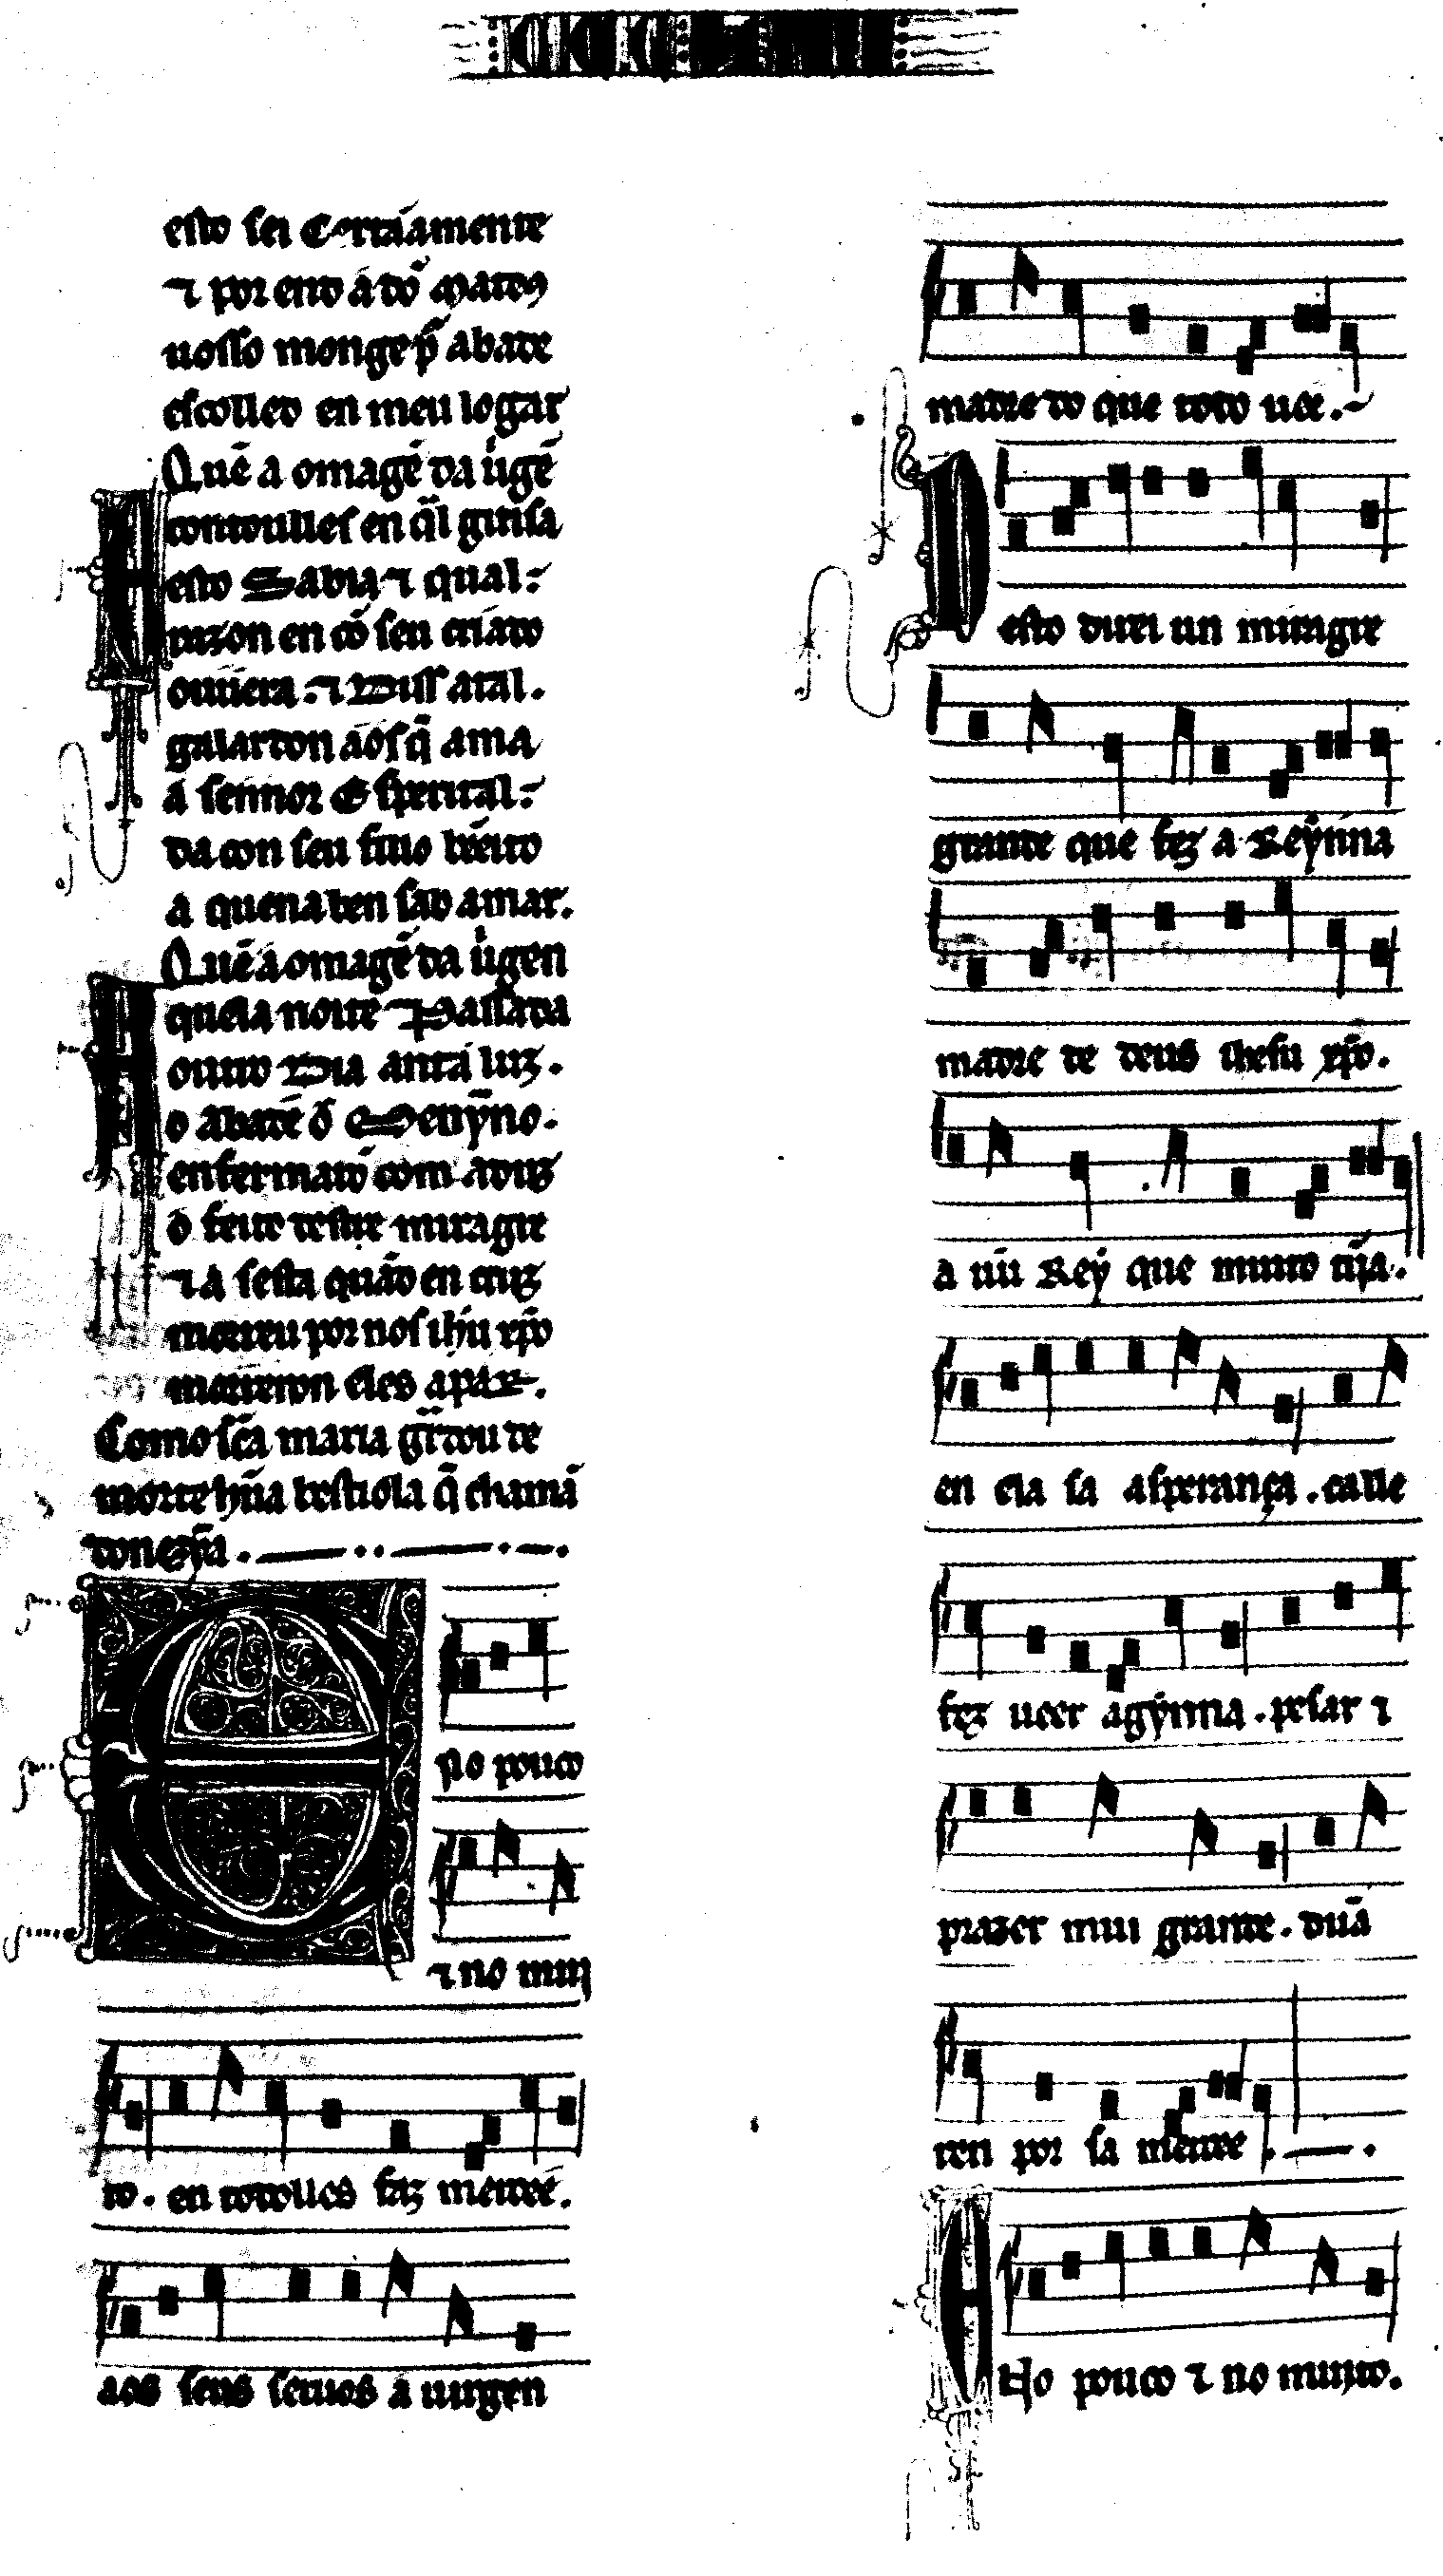 esto sei Certãamente
⁊ por endo a dõ Mateus
uosso monge p̃ abade
escolledo en meu logar
Quẽ a omagẽ da uirgẽ
Contoulles en q̃l guisa
esto Sabia ⁊ qual.
razon en cõ seu criado
ouuera. ⁊ Diss atal.
galardon aos q̃ ama
a sennor Esperital.
da con seu fillo bẽeito
a quena ben sab amar.
Quẽ a omagẽ da uirgen
Aquela noite ⁊ Passada
outro Dia anta luz.
o abade ⁊ o Menỹno.
enfermarõ com aduz
o feito deste miragre
⁊ a sesta quãdo en cruz
morreu por nos ihũ xp̃o
morreron eles a par.
Como sc̃a maria guardou de
morte hũa bestiola q̃ chamã
donezỹa.
Eno pouco
⁊ no mui
to. en todolles faz mercee.
aos seus seruos a uirgen
madre do que todo uee.
Desto direi un miragre
grande que fez a Reỹnna
madre de deus ihesu xp̃o.
a un Rey que muito tĩja.
en ela sa asperança. calle
fez ueer agỹnna. pesar ⁊
prazer mui grande. dũa
ren por sa mercee.
Eno pouco ⁊ no muyto.